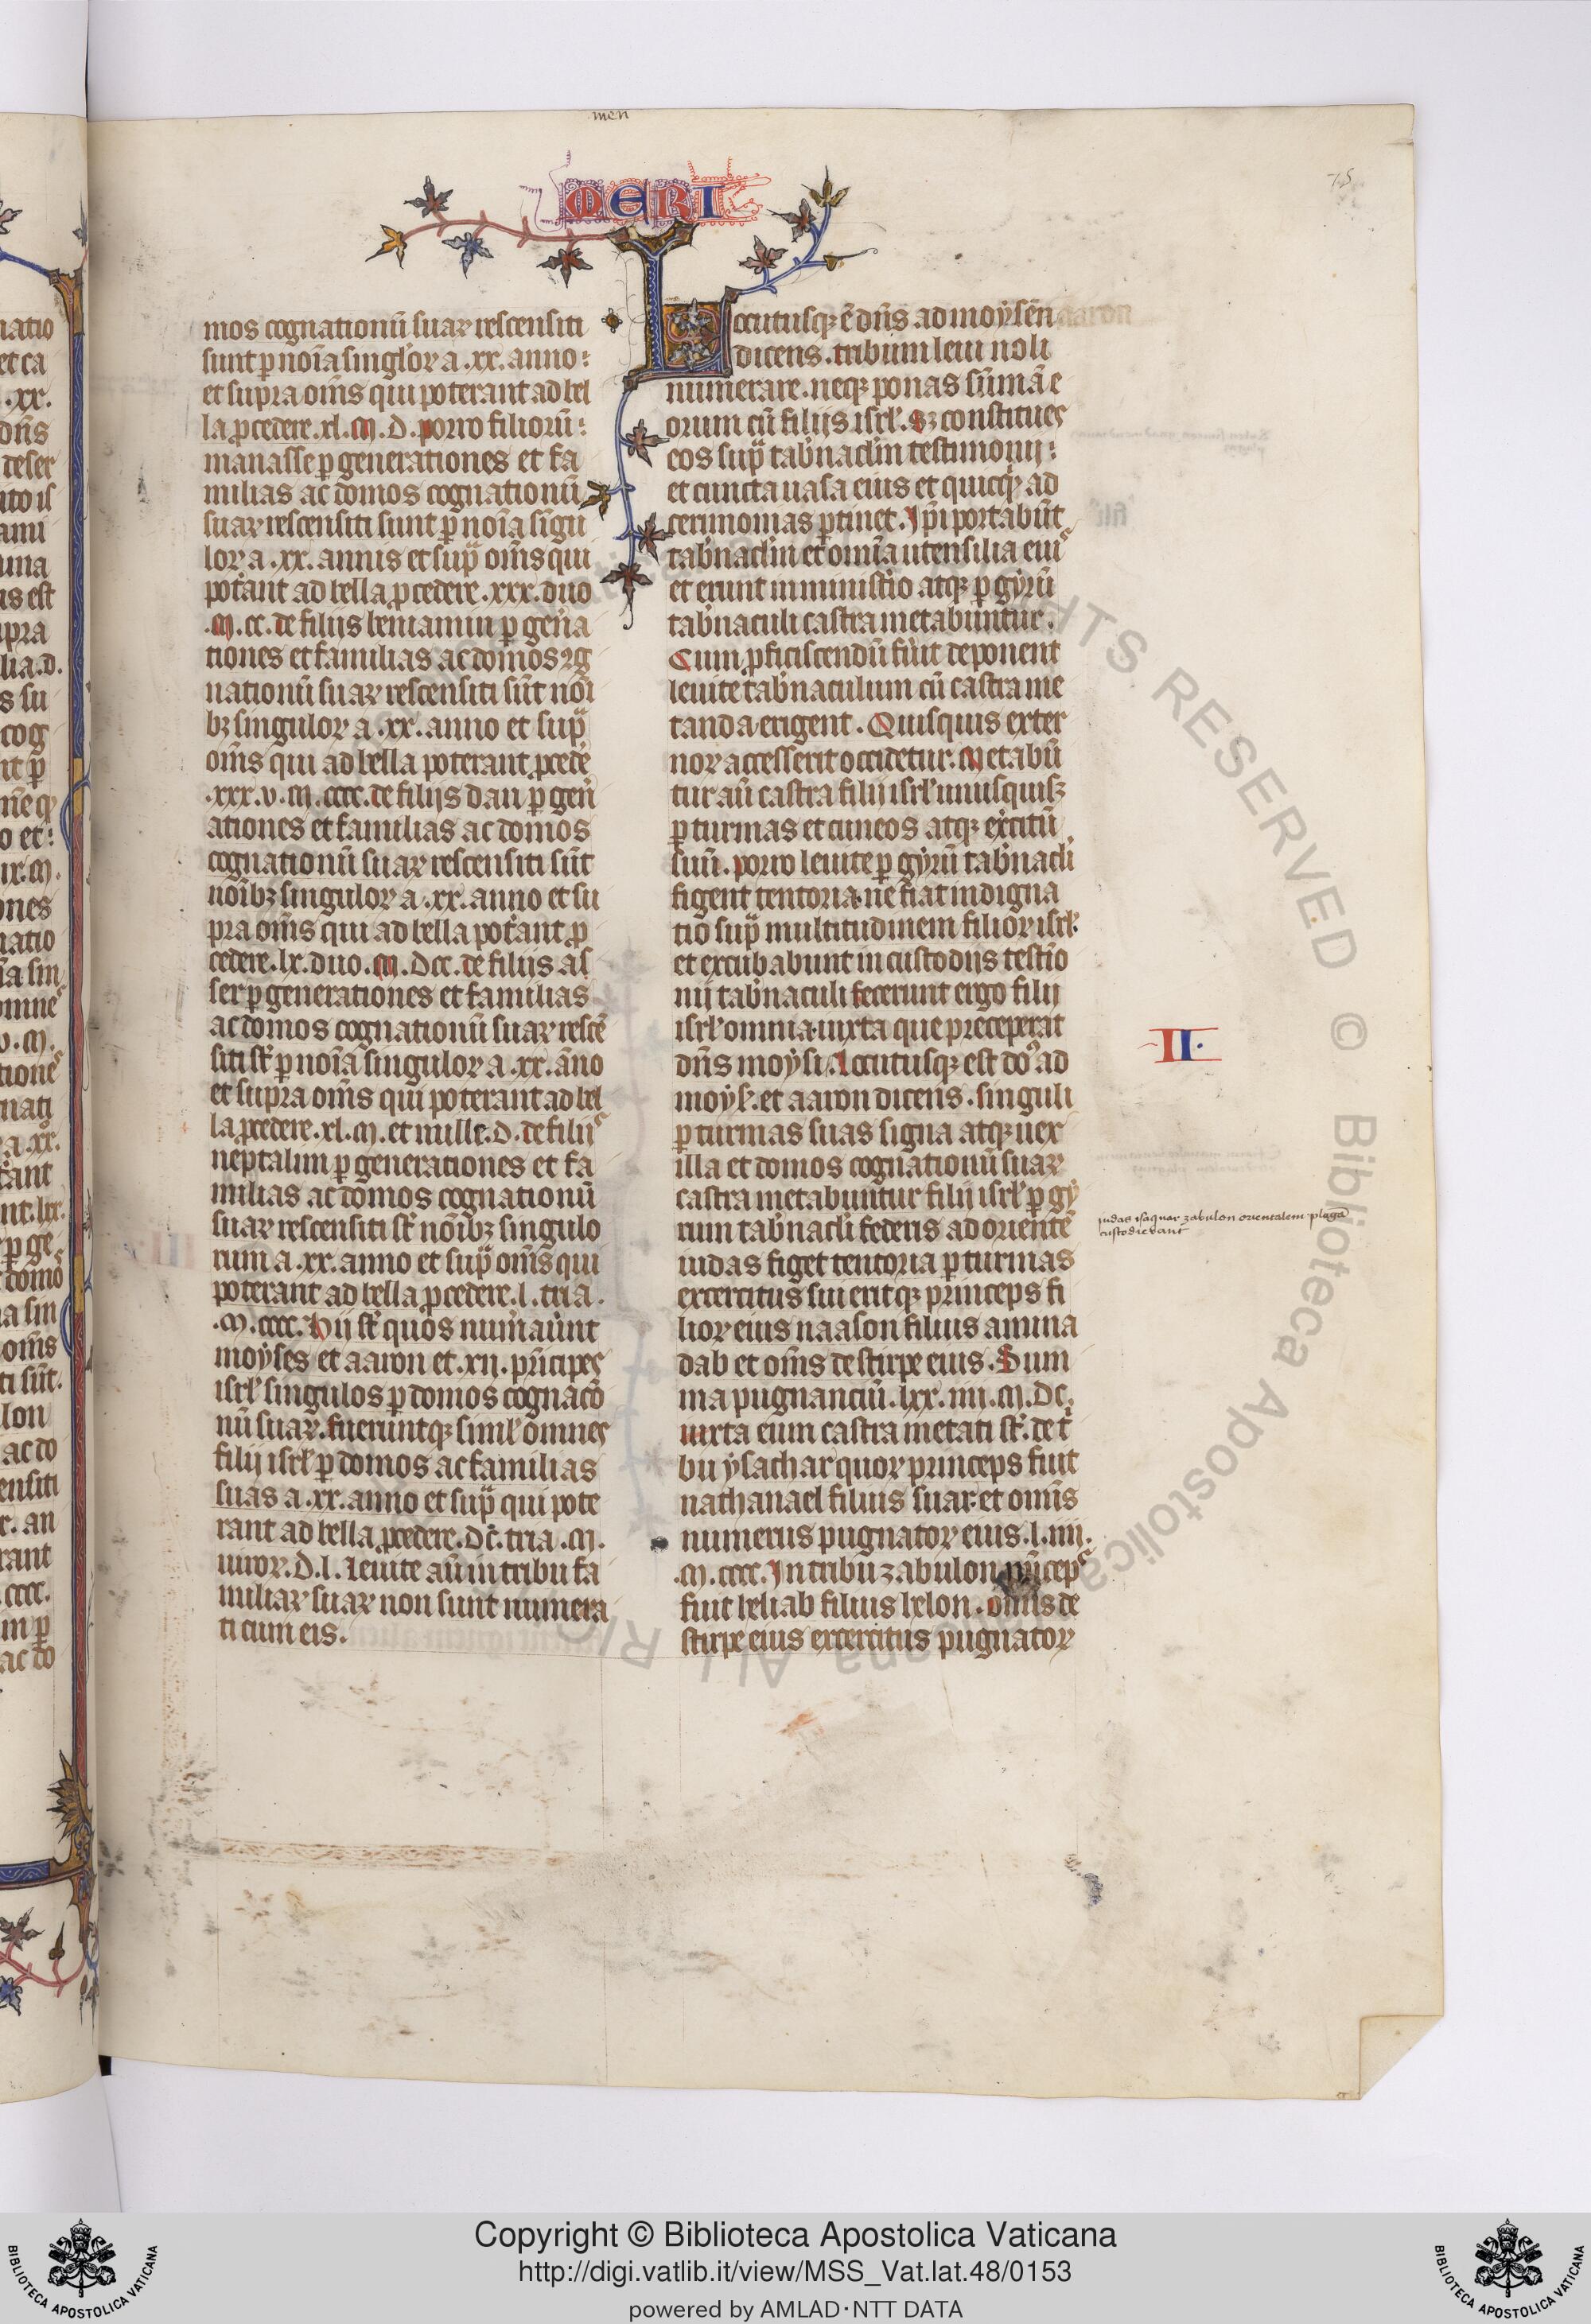 men
MERI
75
mos cognationũ suaꝝ rescensiti
sunt ꝑ noĩa singl'oꝝ a .xx. anno:
et supra om̃s qui poterant ad bel
la ꝓcedere .xl. M. D. porro filiorũ:
manasse ꝑ generationes et fa
milias ac domos cognationũ
suaꝝ rescensiti sunt ꝑ noĩa singu
loꝝ a .xx. annis et sup̃ om̃s qui
pot'ant ad bella ꝓcedere .xxx. duo
.M. cc. de filiis beniamin ꝑ gen'a
tiones et familias ac domos ꝯg
nationũ suaꝝ rescensiti sũt noĩ
bꝫ singuloꝝ a .xx. anno et sup̃
om̃s qui ad bella poterant ꝓced'e
.xxx. v. M. cccc. de filijs dan ꝑ gen'
ationes et familias ac domos
cognationũ suaꝝ rescensiti sũt
noĩbꝫ singuloꝝ a .xx. anno et su
pra om̃s qui ad bella pot'ant ꝓ
cedere .lx. duo. M. Dcc. de filiis as
ser ꝑ generationes et familias
ac domos cognationũ suaꝝ rescẽ
siti st̃ ꝑ noĩa singuloꝝ a .xx. ãno
et supra om̃s qui poterant ad bel
la ꝓcedere .xl. M. et mille. D. de filijs
neptalim ꝑ generationes et fa
milias ac domos cognationũ
suaꝝ rescensiti st̃ noĩbꝫ singulo
rum a .xx. anno et sup̃ om̃s qui
poterant ad bella ꝓcedere .l. tria.
.M. cccc. Hij st̃ quos num'aũnt
moyses et aaron et .xii. pñcipes
isrl' singulos ꝑ domos cognacõ
nũ suaꝝ. fueruntqꝫ simĺ omnes
filij isrl' ꝑ domos ac familias
suas a .xx. anno et sup̃ qui pote
rant ad bella ꝓcedere. Dc̃. tria .M.
uiroꝝ. D. l. Leuite aũ in tribu fa
miliaꝝ suaꝝ non sunt numera
ti cum eis.
Locutusqꝫ ẽ dñs ad moysen aaron
dicens. tribum leui noli
numerare. neqꝫ ponas sũmã e
orum cũ filijs isrl'. Sꝫ constitues
eos sup̃ tab'naclm testimonij:
et cuncta uasa eius et quicqͥd ad
cerimonias ꝑtinet. Ip̃i portabũt
tab'naclm et omĩa utensilia eius
et erunt in minist'io atqꝫ ꝑ gyrũ
tab'naculi castra metabuntur.
Cum ꝓficiscendũ fũit deponent
leuite tab'naculum cũ castra me
tanda erigent. Quisquis exter
noꝝ accesserit occidetur. Metabũ
tur aũ castra filij isrl' unusquisqꝫ
ꝑ turmas et cuneos atqꝫ exc'itũ
suũ. porro leuite ꝑ gyrũ tab'nacli
figent tentoria. ne fiat indigna
tio sup̃ multitudinem filioꝝ isrl'.
et excubabunt in custodijs testĩo
nij tab'naculi fecerunt ergo filij
isrl' omnia. iuxta que preceperat
dñs moysi. Locutusqꝫ est do⁹ ad
moyẜ. et aaron dicens. singuli
ꝑ turmas suas signa atqꝫ uex
illa et domos cognationũ suaꝝ
castra metabuntur filij isrl' ꝑ gy
rum tab'nacli federis ad orientẽ
iudas figet tentoria ꝑ turmas
excercitus sui eritqꝫ princeps fi
lioꝝ eius naason filius amina
dab et om̃s de stirpe eius. Sum
ma pugnanciũ .lxx. iiii. M. DC.
iuxta eum castra metati st̃. de tͥ
bu ysachar quoꝝ princeps fuit
nathanael filius suar. et om̃s
numerus pugnatoꝝ eius .l. iiij.
.M. cccc. In tribu zabulon pñceps
fuit heliab filius helon. om̃is de
stirpe eius excercitus pugnatoꝝ
II.
iudas isaquar zabulon orientalem plagã
custodiebant
ALL RIGHTS RESERVED © Biblioteca Apostolica Vaticana
BIBLIOTECA APOSTOLICA VATICANA
Copyright © Biblioteca Apostolica Vaticana
http://digi.vatlib.it/view/MSS_Vat.lat.48/0153
powered by AMLAD·NTT DATA
BIBLIOTECA APOSTOLICA VATICANA